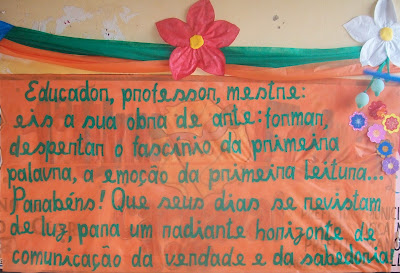 Educador, professor, mestre:
eis a sua obra de arte: formar,
despertar o fascínio da primeira
palavra, a emoção da primeira leitura...
Parabéns! Que seus dias se revistam
de luz, para um radiante horizonte de
comunicação da verdade e da sabedoria!